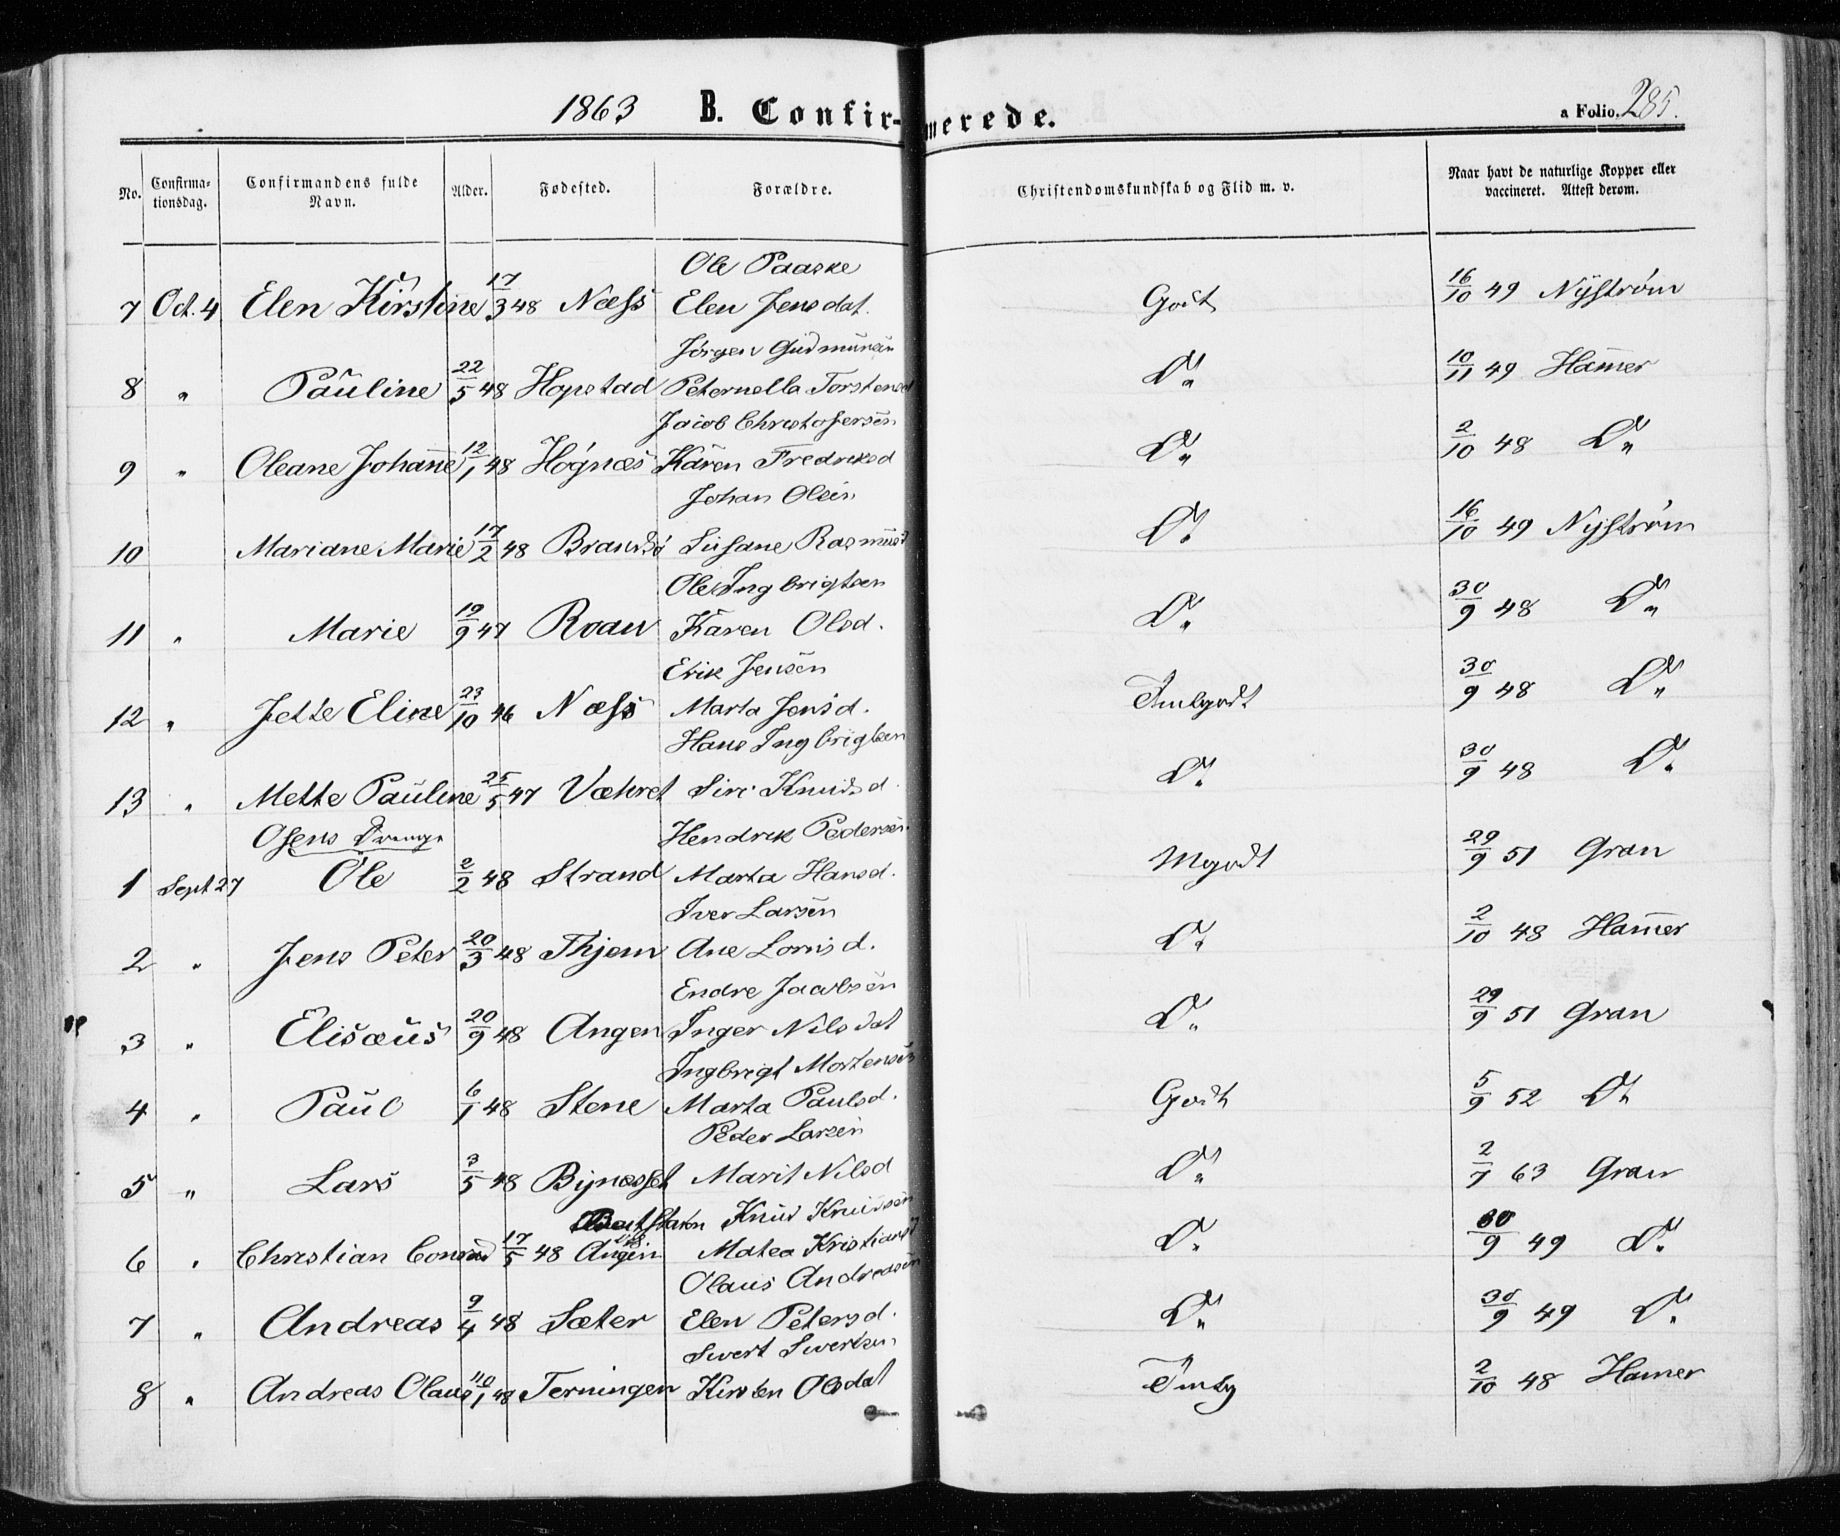 1863 B. Confirmerede. a Folio. 285.
No. Confirmationsdag. Confirmandens fulde Navn. Alder. Fødested. Forældre. Christendomskundskab og Flid m. v. Naar havt de naturlige Kopper eller vaccineret. Attest derom.
Ole Paaske
7 Oct. 4 Elen Kirstine 17/3 48 Næss Elen Jensdat. Godt 16/10 49 Nyström
Jörgen Gudmunsen
8 " Pauline 22/5 48 Hopstad Peternella Torstensd D° 10/11 49 Hamer
Jacob Christofersen
9 " Oleane Johanne 12/1 48 Högnæs Karen Fredriksd D° 2/10 48 D°
Johan Olsen
10 Mariane Marie 17/2 48 Brandsö Susane Rasmusd D° 16/10 49 Nyström
Ole Ingbrigtsen
11 " Marie 19/9 47 Roan Karen Olsd. D° 30/9 48 D°
Erik Jensen
12 " Jette Eline 23/10 46 Næss Marta Jensd. Tmlgodt 30/9 48 D°
Hans Ingbrigtsen
13 " Mette Pauline 25/5 47 Væhret Siri Knudsd. D° 30/9 48 D°
Osens Drenge Hendrik Pedersen
1 Sept 27 Ole 2/2 48 Strand Marta Hansd. Mgodt 29/9 51 Gran
Iver Larsen
2 " Jens Peter 20/3 48 Thjem Ane Lornsd. D° 2/10 48 Hamer
Endre Jacobsen
3 " Elisæus 20/9 48 Angen Inger Nilsdat D° 29/9 51 Gran
Ingbrigt Mortensen
4 " Paul 6/1 48 Stene Marta Paulsd. Godt 5/9 52 D°
Peder Larsen
5 " Lars 3/5 48 Bynesset Marit Nilsd D° 2/7 63 Gran
Knud Knudsen
6 " Christian Conrad 17/5 48 Angen Matea Kristiansd D° 30/9 49 D°
Olaus Andreasen
7 " Andreas 9/4 48 Sæter Elen Petersd. D° 30/9 49 D°
Sivert Sivertsen
8 " Andreas Olaus 10/1 48 Terningen Kirsten Olsdat Tmlg 2/10 48 Hamer